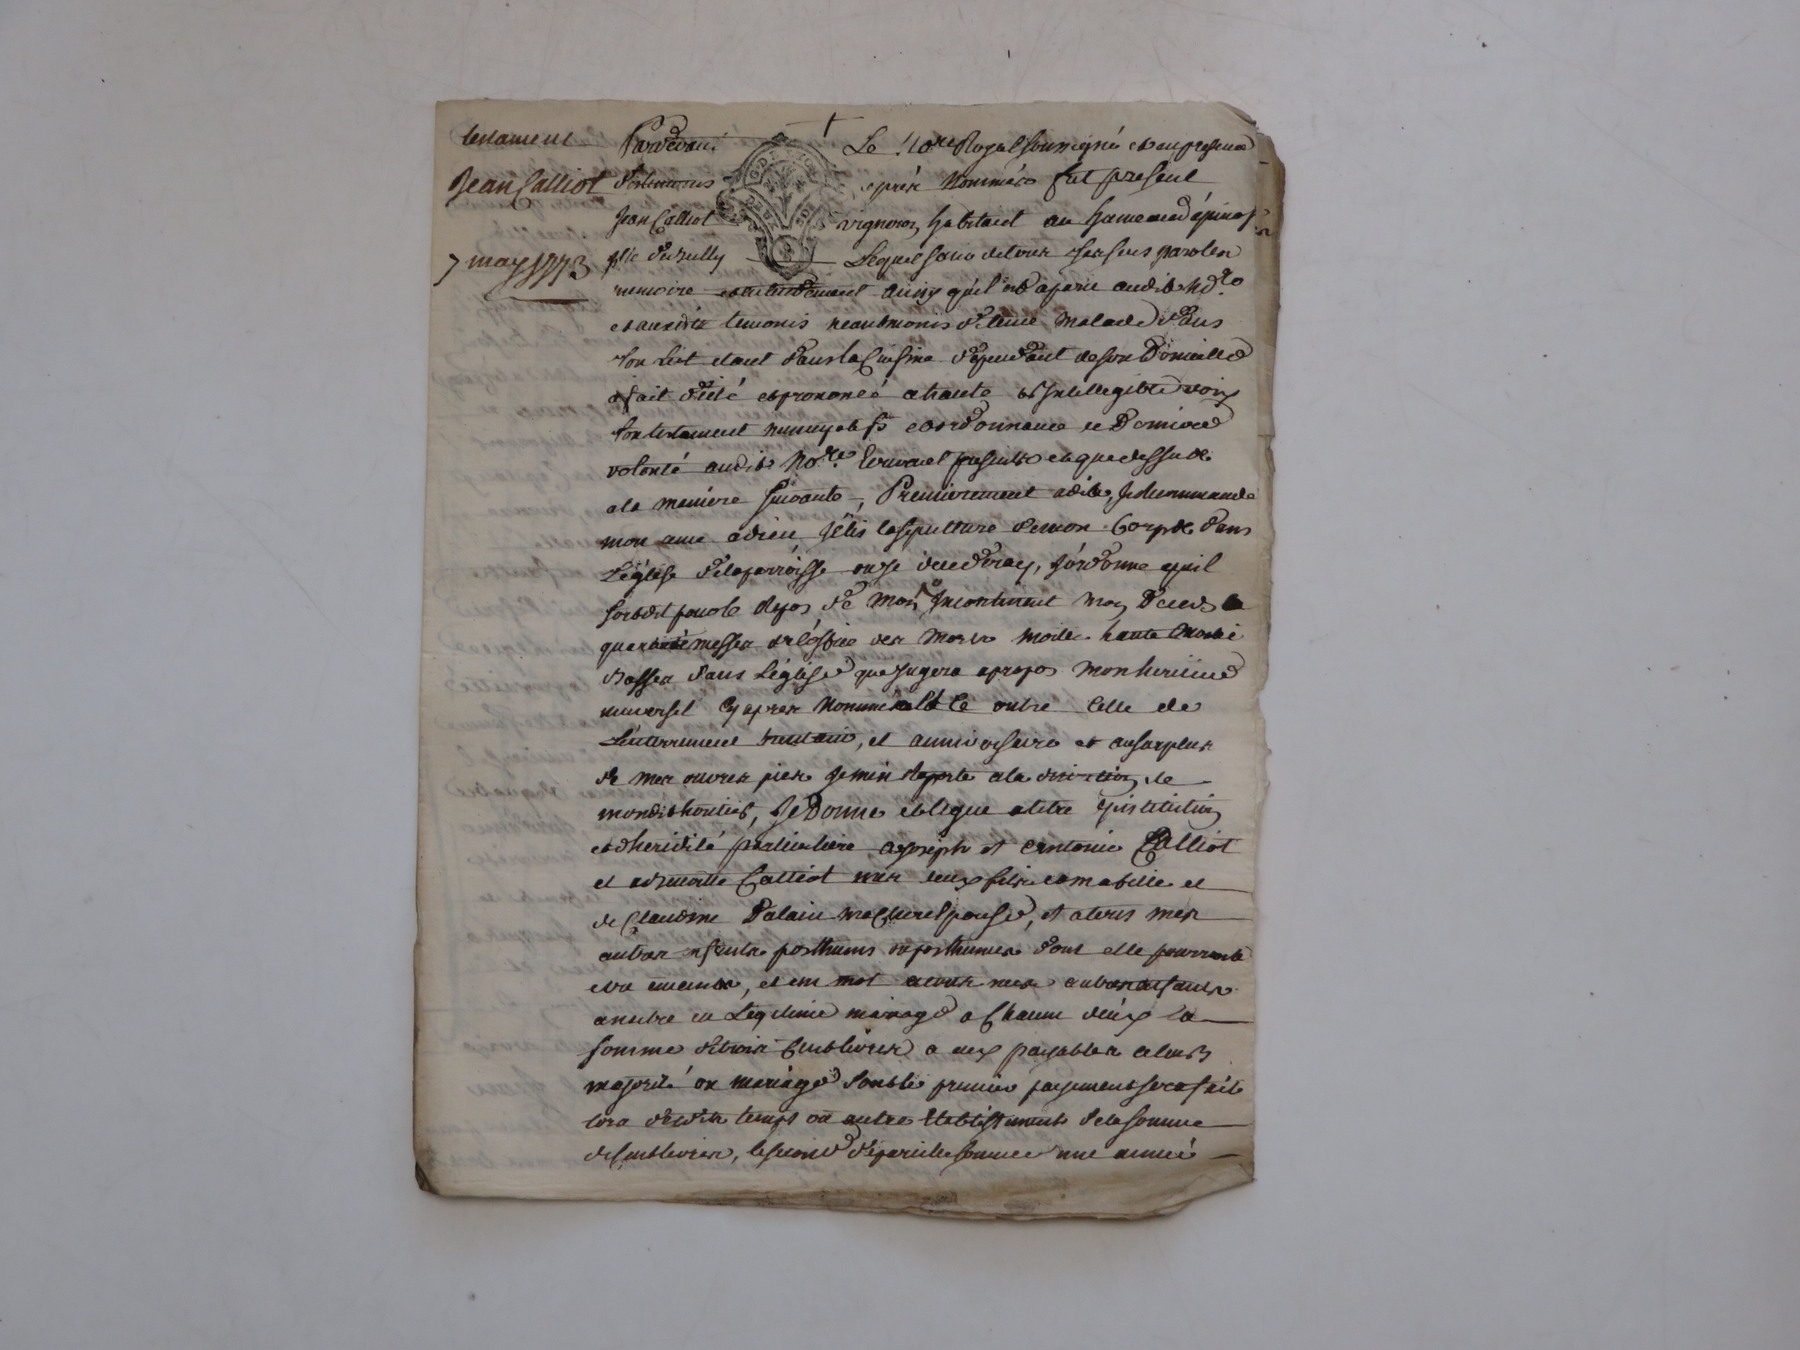 testament
Jean Calliot
7 may 1773
Pardevant Le No.re Royal soussigné et en presence
des temoins après Nommés fut present
Jean Calliot vigneron habitant au hameau d'épinas
p.sse de Lequel sain de tous ses sens parolle
memoire et entendement ainsy qu'il est aparu audit No.re
et auxdits temoins neantmoins detenu malade dans
son Lit etant dans la Cuisine dependant de son Domicille
a fait dicté et prononcé a haute et Intellegible voix
son testament nuncupatif et ordonnance de Derniere
volonté audit No.re temoins presents et que dessus
a la maniere suivante, Premierement a dit, Je recommande
mon ame a dieu J'élis la sepulture de mon Corps dans
L'église de la parroisse ou je decederay, J'ordonne qu'il
soit dit pour le Repos de Mon ame Incontinent mon Decès
quarante messes de l'office des Morts moitié haute moitié
Basses dans L'église que jugera apropos Mon heritiere
universel Cy apres Nommé et Ce outre Celle de
L'enterrement, et anniversaire et au surplus
de mes euvres pies je m'en raporte a la discretion de
mondit heritier, Je Donne et legue a titre d'institution
et d'heridité particuliere a Joseph et Antoine Calliot
et Calliot mes deux fils et ma fille et
de Claudine Dalain ma Chere Epouse, et a tous mes
autres enfants posthums ou posthumes dont elle pourroit
etre enceinte, et en un mot a tous mes autres enfants
a naitre en Legitime mariage a Chacun d'eux la
somme de trois Cent livres a eux payables a leurs
majorité ou mariage dont le premier payement sera fait
lors desdits temps ou autre Etablissement de la somme
de Cent livres, le second de pareille somme une année